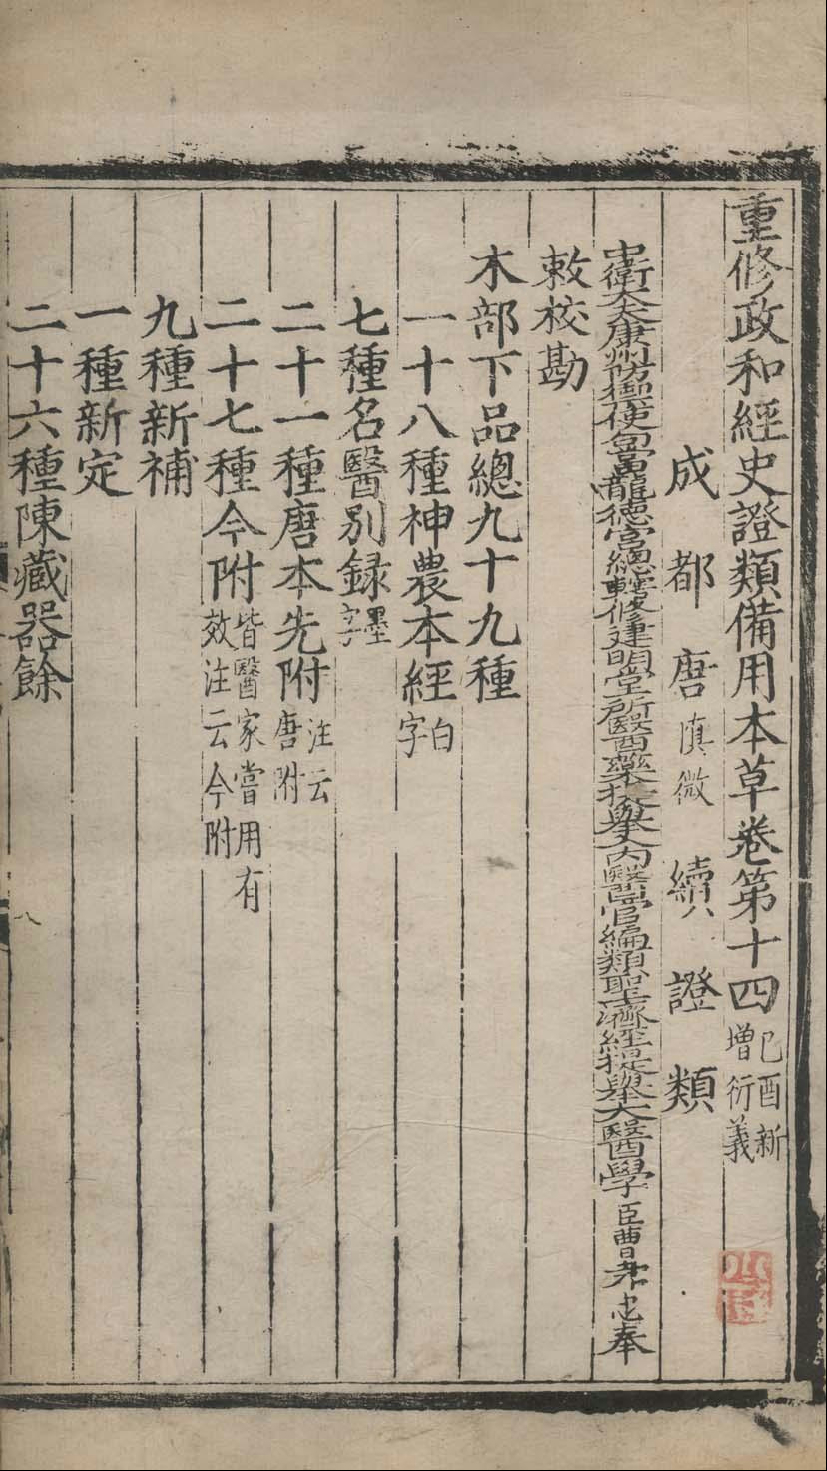 重修政和經史證類備用本草卷第十四己酉新增衍義
成都唐慎微續證類
中衛大夫康州防禦使句當龍德宮總轄修建明堂所醫藥提舉入內醫官編類聖濟經提舉大醫學臣曹孝忠奉
敕校勘
木部下品總九十九種
一十八種神農本經白字
七種名醫別録墨字
二十一種唐本先附注云唐附
二十七種今附皆醫家嘗用有效注云今附
九種新補
一種新定
二十六種陳藏器餘
八